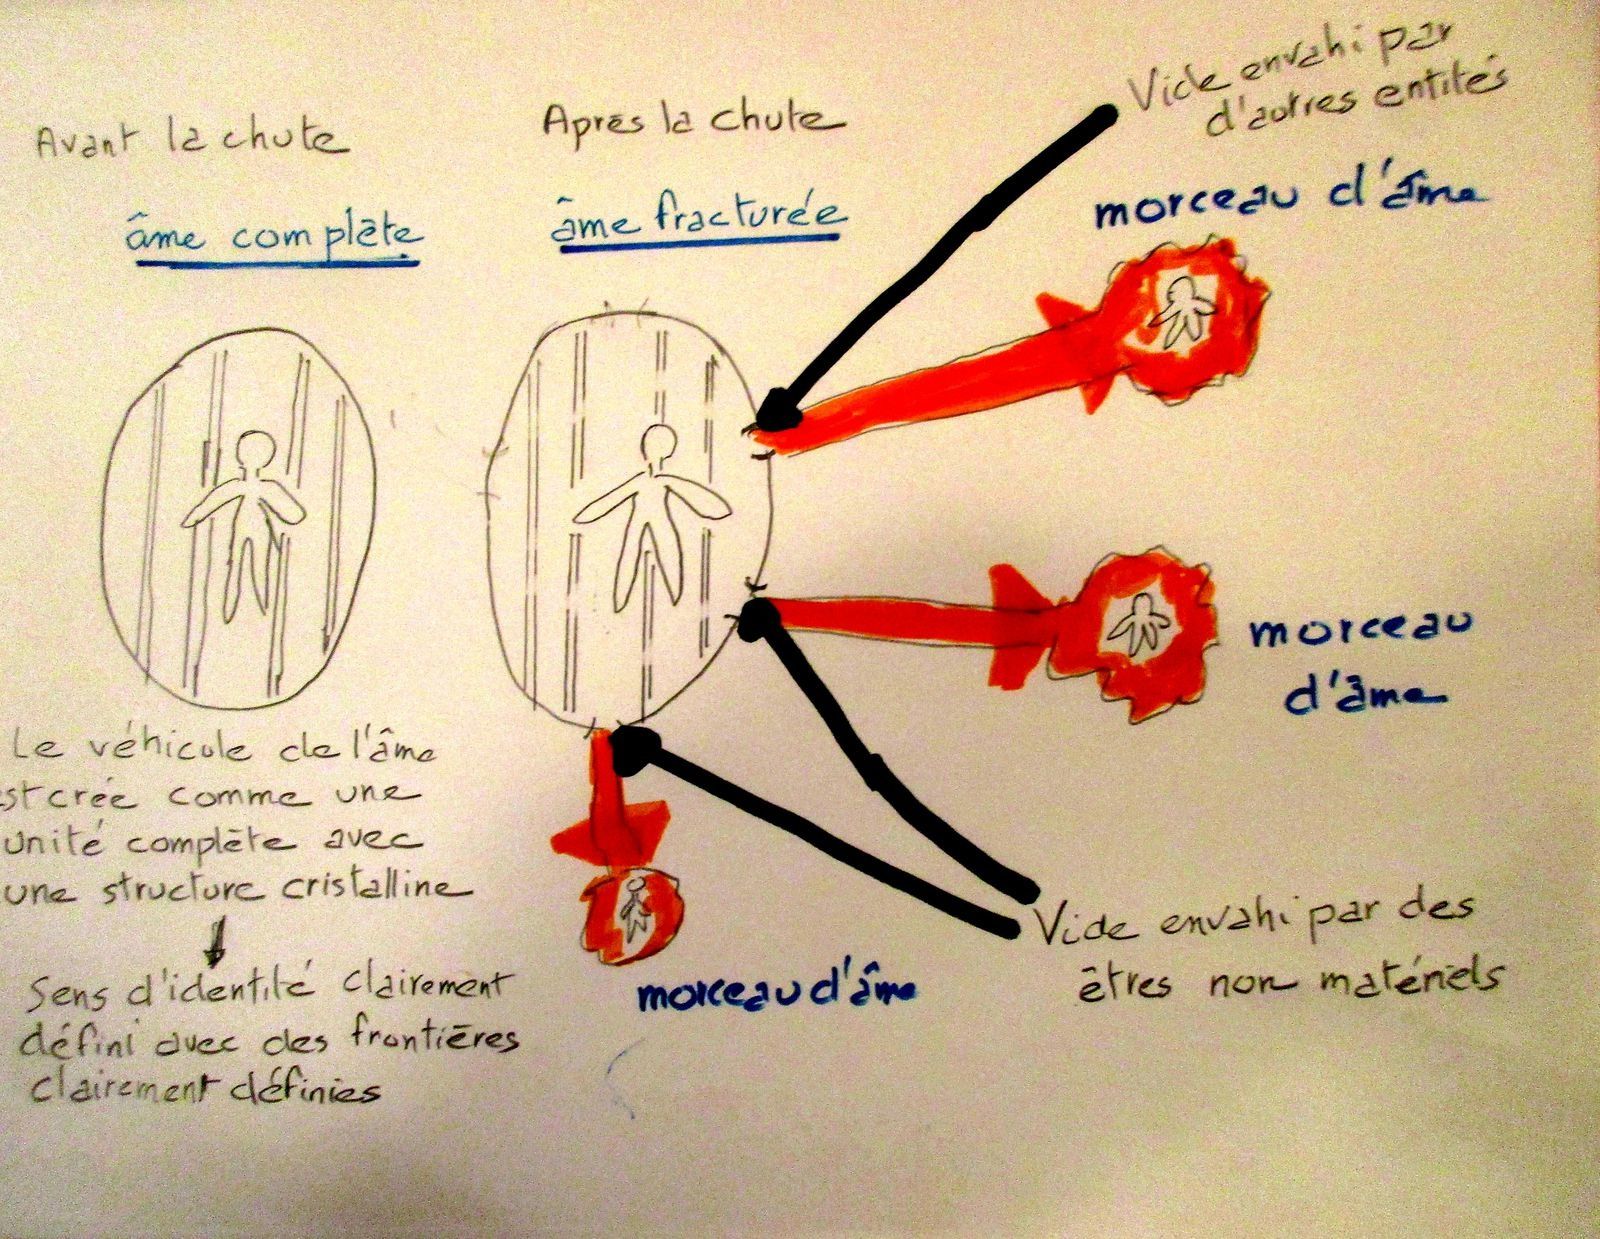 Avant la chute
âme complète
Le véhicule de l'âme
est crée comme une
unité complète avec
une structure cristalline
Sens d'identité clairement
défini avec des frontières
clairement définies
Après la chute
âme fracturée
Vide envahi par
d'autres entités
morceau d'âme
morceau
d'âme
morceau d'âme
Vide envahi par des
êtres non matériels